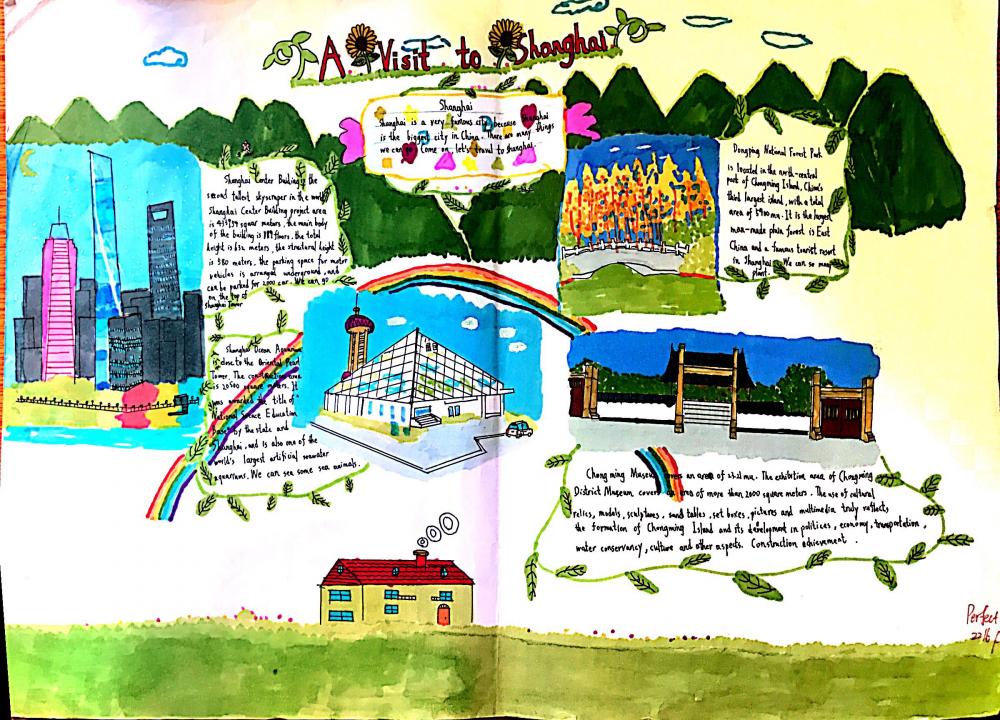 A Visit to Shanghai
Shanghai
Shanghai is a very famous city because Shanghai
is the biggest city in China. There are many things
we can go. Come on, let's travel to shanghai.
Shanghai Center Building is the
second tallest skyscraper in the world
Shanghai Center Building project area
is square meters, the main body
of the building is 119 floors. the total
height is 632 meters, the structural height
is 580 meters, the parking space for motor
vehiclas is arranged underground, and
can be parked for 2000 car. We can go
on the top of
Shanghai Tower
Dongping National Forest Park
is located in the north-central
part of Chongming Island, China's
third largest island, with a total
area of mu. It is the largest
man-made plain forest is East
China and a famous tourist resort
in Shanghai. We can so many
plant.
Shanghai Ocean Aquarium
is close to the Oriental Pearl
Tower. The construction area
is 20500 square meters. It
was awarded the title of
National Science Education
Base by the state and
Shanghai, and is also one of the
world's largest artificial seawater
aquariums. We can see some sea animals.
Chong ming Museum an area of mu. The exhibition area of Chongming
District Museum, covers an area of more than 2000 square meters. The use of cultural
relics, modals, sculptures, sand tables, set boxes, pictures and multimedia truly reflects
the formation of Chongming Island and its development in politices, economy, transportation,
water conservancy, culture and other aspects. Construction achievement.
Perfect